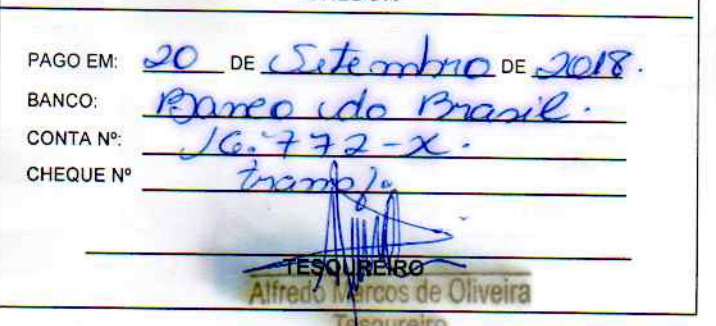 PAGO EM: 20 DE Setembro DE 2018.
BANCO: Banco do Brasil.
CONTA Nº: 16.772-X.
CHEQUE Nº
TESOUREIRO
Alfredo Marcos de Oliveira
Tesoureiro